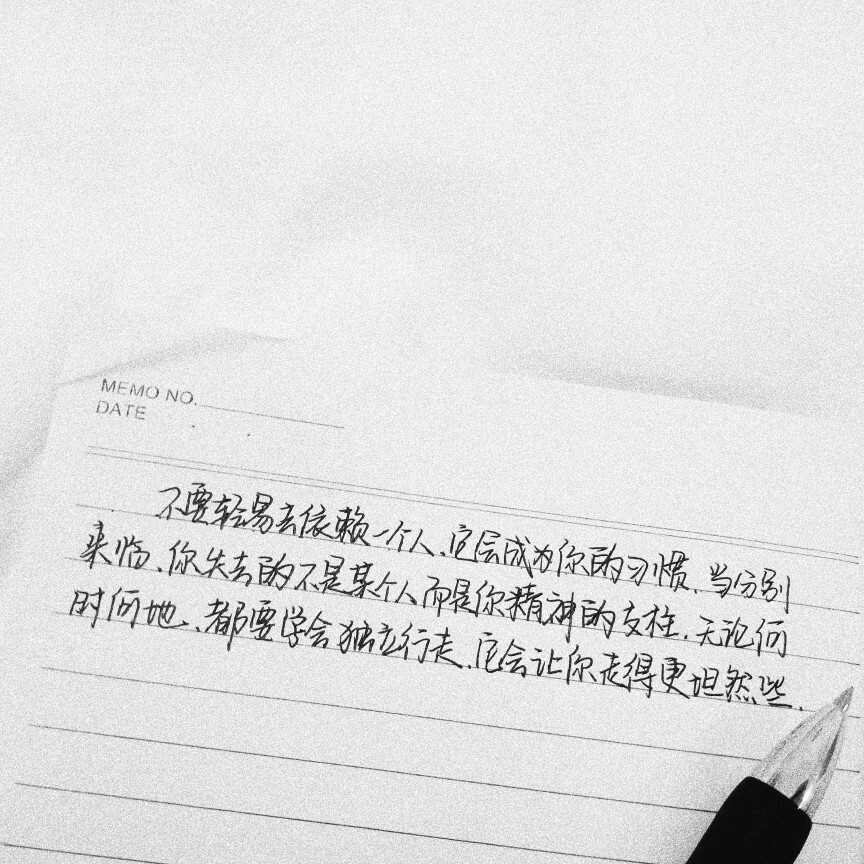 MEMO NO.
DATE
不要轻易去依赖一个人、它会成为你的习惯、当分别
来临、你失去的不是某个人而是你精神的支柱、无论何
时何地、都要学会独立行走、它会让你走得更坦然些、